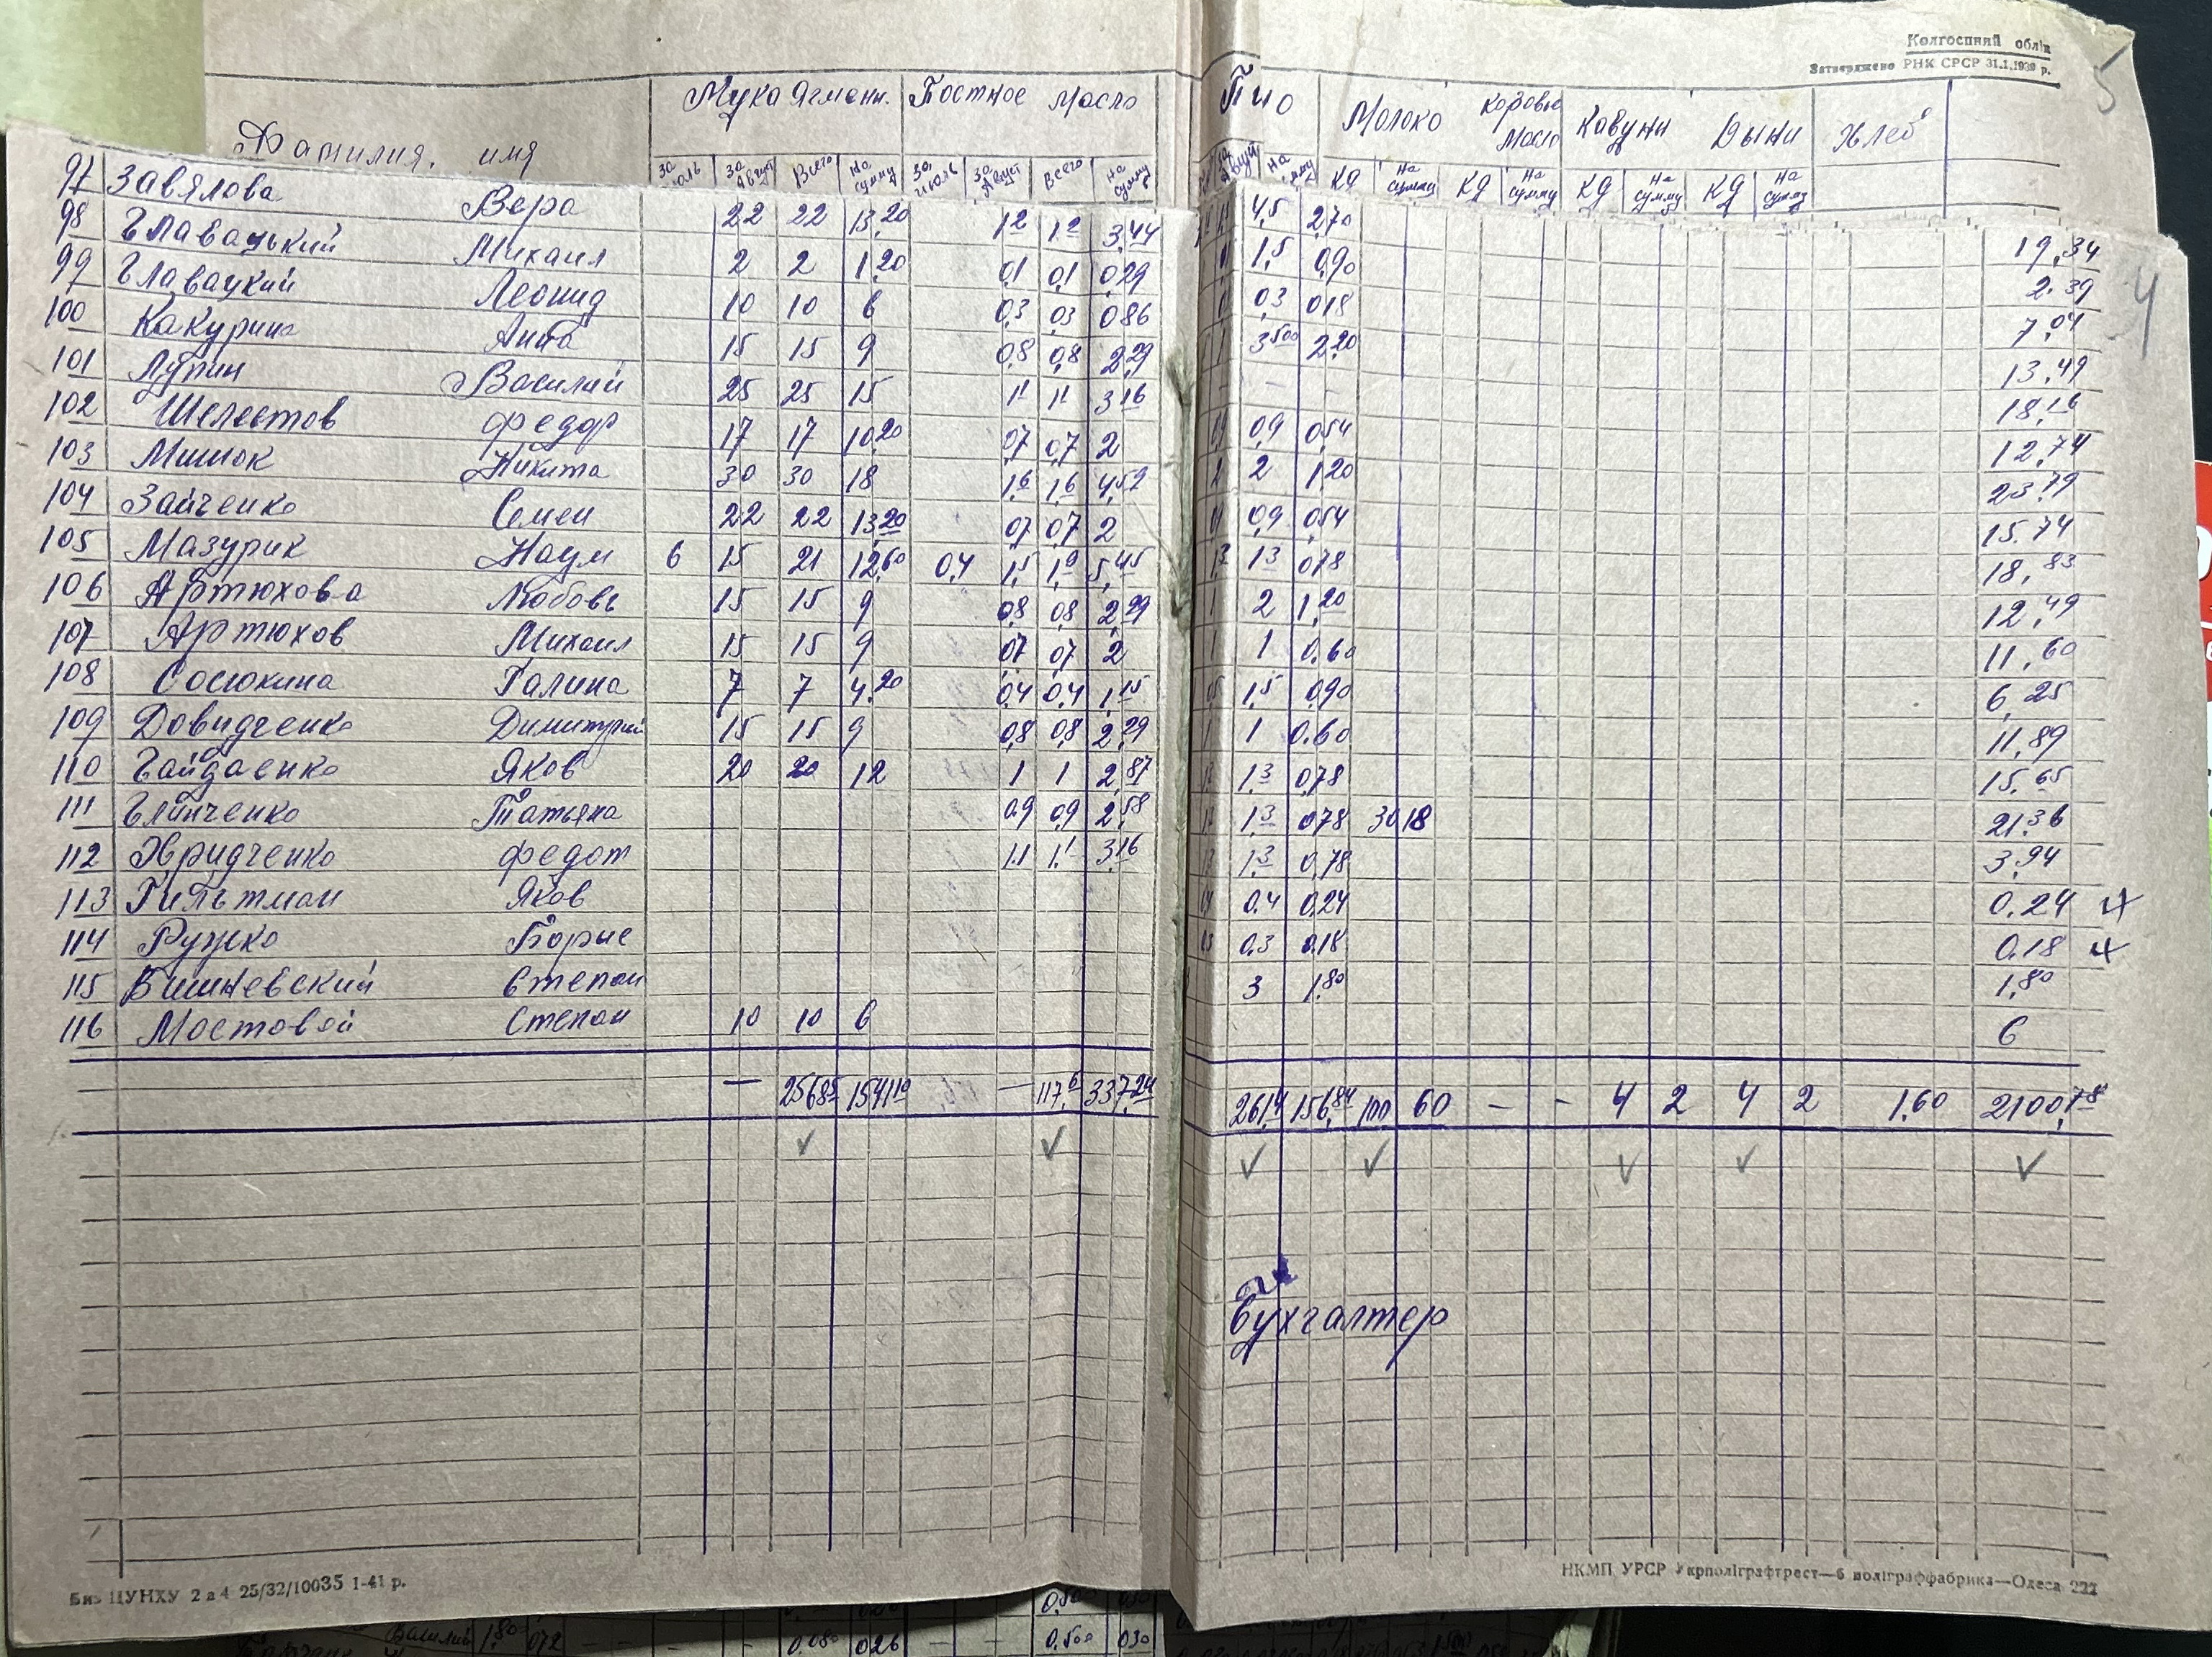 Колгоспний облік
Затверджено РНК СРСР 31.1.1939 р.
5
Фамилия, имя Мука Ягменн. Постное масло Пшо Молоко Коровье масло Кавуны Дыни Хлеб
За июль За Август Всего На сумму За июль За Август Всего На сумму За Август На сумму Кд На сумму Кд На сумму Кд На сумму Кд На сумму
4
97 Завялова Вера 22 22 13,20 1,2 1,2 3,44 4,5 2,70 19,34
98 Главацький Михаил 2 2 1,20 0,1 0,1 0,29 1,5 0,90 2.39
99 Главацкий Леонид 10 10 6 0,3 0,3 0,86 0,3 0,18 7,04
100 Какурина Анна 15 15 9 0,8 0,8 2,29 3,500 2,20 13,49
101 Лупин Василий 25 25 15 1,1 1,1 3,16 - - 18,16
102 Шелестов Федор 17 17 10,20 0,7 0,7 2 0,9 0,9 0,54 12,74
103 Мишок Никита 30 30 18 1,6 1,6 4,59 2 2 1,20 23,79
104 Зайченко Семен 22 22 13,20 0,7 0,7 2 0,9 0,54 15.74
105 Мазурик Наум 6 15 21 12,60 0,4 1,5 1,9 5,45 1,3 1,3 0,78 18,83
106 Артюхова Любовь 15 15 9 0,8 0,8 2,29 1 2 1,20 12,49
107 Артюхов Михаил 15 15 9 0,7 0,7 2 1 1 0,60 11,60
108 Сосюкина Галина 7 7 4,20 0,4 0,4 1,15 0,5 1,5 0,90 6,25
109 Довидченко Димитрий 15 15 9 0,8 0,8 2,29 1 1 0.60 11,89
110 Гайдаенко Яков 20 20 12 1 1 2,87 1,3 1,3 0,78 15,65
111 Глинченко Татьяна 0,9 0,9 2,58 1,3 0,78 30 18 21.36
112 Хридченко Федот 1,1 1,1 3,16 1,3 1,3 0,78 3,94
113 Гильтман Яков 0,4 0.4 0,24 0.24
114 Рушко Борис 0,3 0.3 0,18 0.18
115 Вишневский Степан 3 1,80 1,80
116 Мостовой Степан 10 10 6 6
— 2568,5 1541,10 — 117,6 337,24 261,4 156,84 100 60 - - 4 2 4 2 1,60 2100,78
Бухгалтер
Биз ЦУНХУ 2 а 4 25/32/10035 1-41 р.
НКМП УРСР Укрполіграфтрест—6 поліграффабрика—Одеса 222
Василий 1,80 0,72 - - - - 0.080 0,26 - - 0.500 0,30